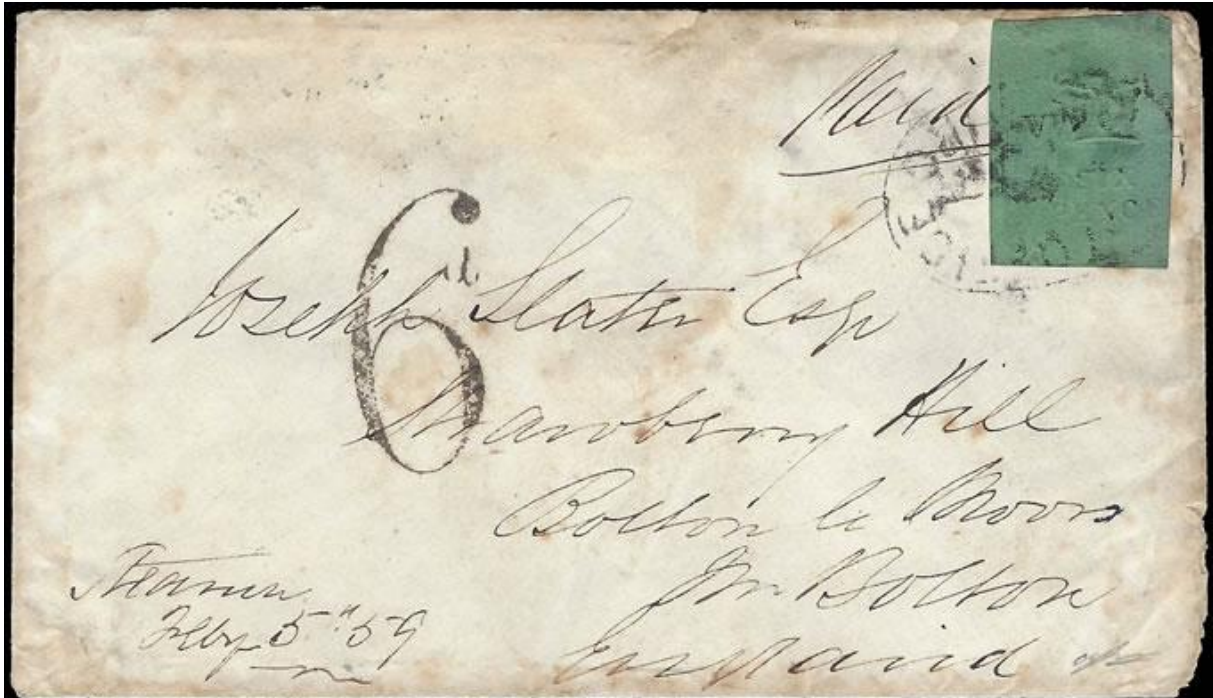 Paid
6
Joseph Slater Esqr
Strawberry Hill
Bolton le Moors
Nr Bolton
England
Steamer
Feby 5th 59